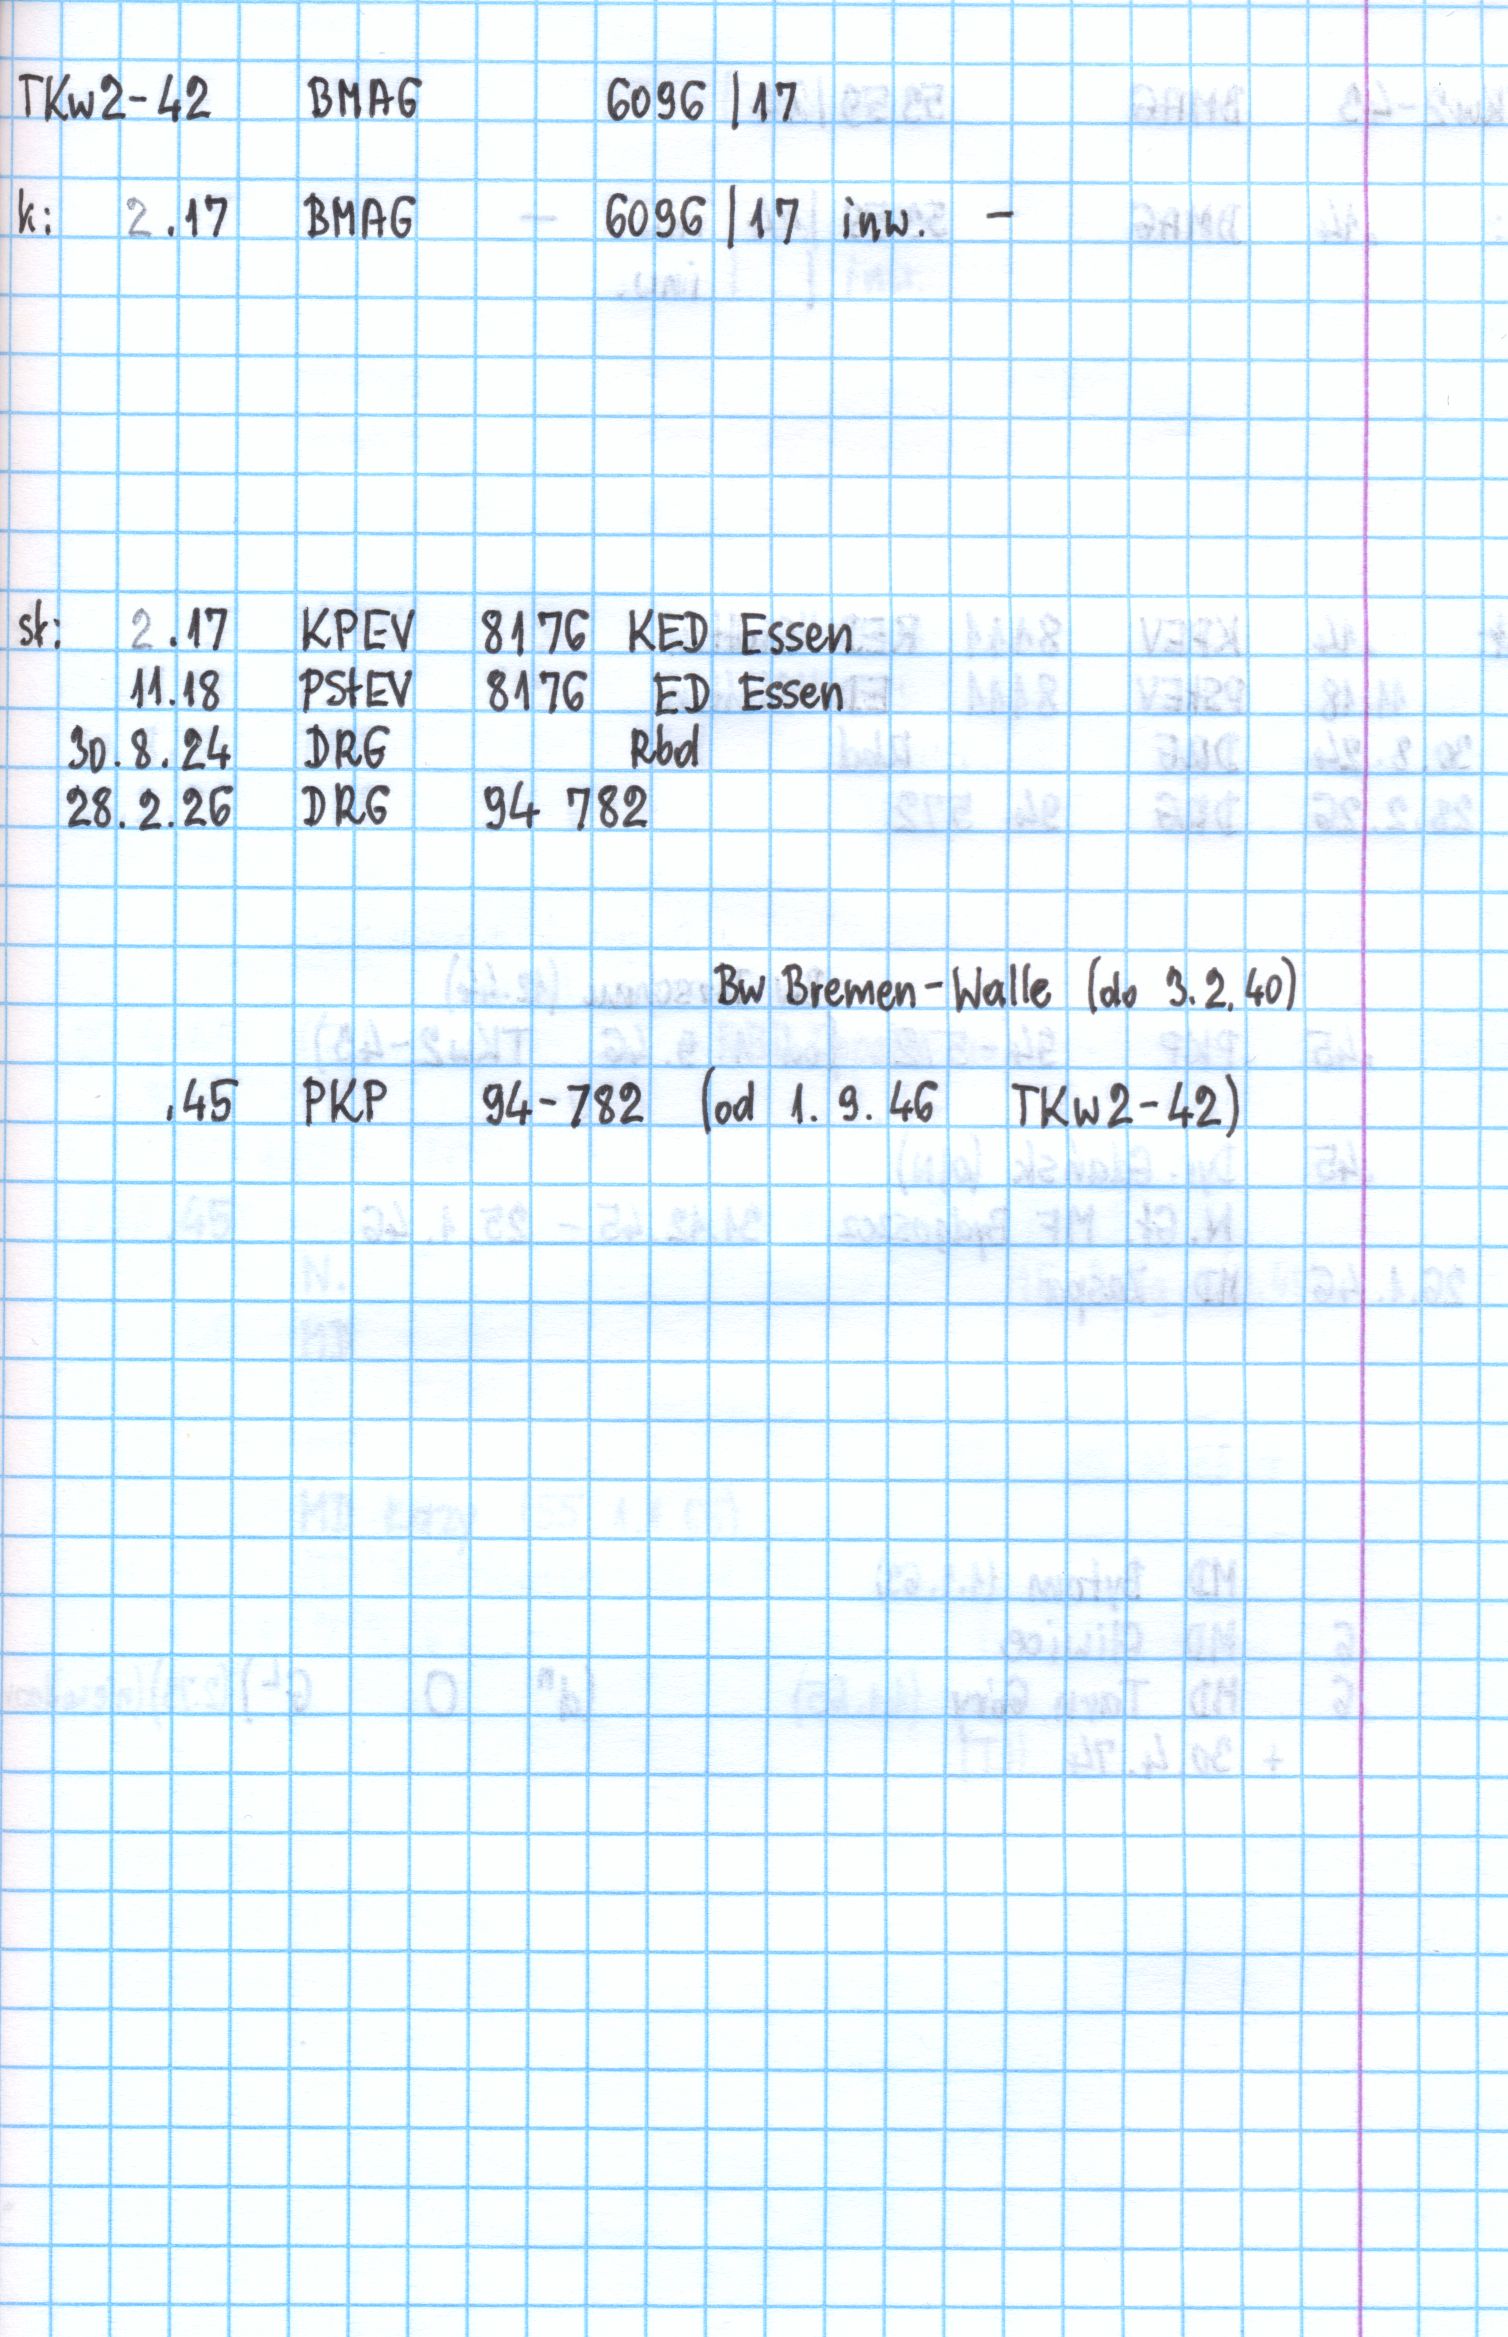 TKw2-42 BMAG 6096/17
k: 2.17 BMAG - 6096/17 inw. -
st: 2.17 KPEV 8176 KED Essen
11.18 PStEV 8176 ED Essen
30.8.24 DRG Rbd
28.2.26 DRG 94 782
Bw Bremen-Walle (do 3.2.40)
.45 PKP 94-782 (od 1.9.46 TKw2-42)